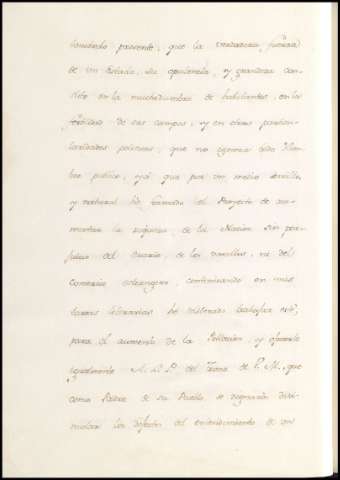 teniendo presente, que la verdadera fuerza
de un Estado, su opulencia, y grandeza con-
siste en la muchedumbre de habitantes, en la
fertilidad de sus campos, y en otras particu-
laridades precisas, que no ignora todo Hom-
bre publico, y á que por un medio sencillo,
y natural he formado el Proyecto de au-
mentar la riqueza de la Nacion sin per-
juicio del Erario, de los vasallos, ni del
Comercio estrangero, continuando en mis
tareas literarias he
para el aumento de la Poblacion, y ofrezco
igualmente A. L. P. del Trono de V. M., que
como Padre de su Pueblo se dignará disi-
mular los defectos del entendimiento de un